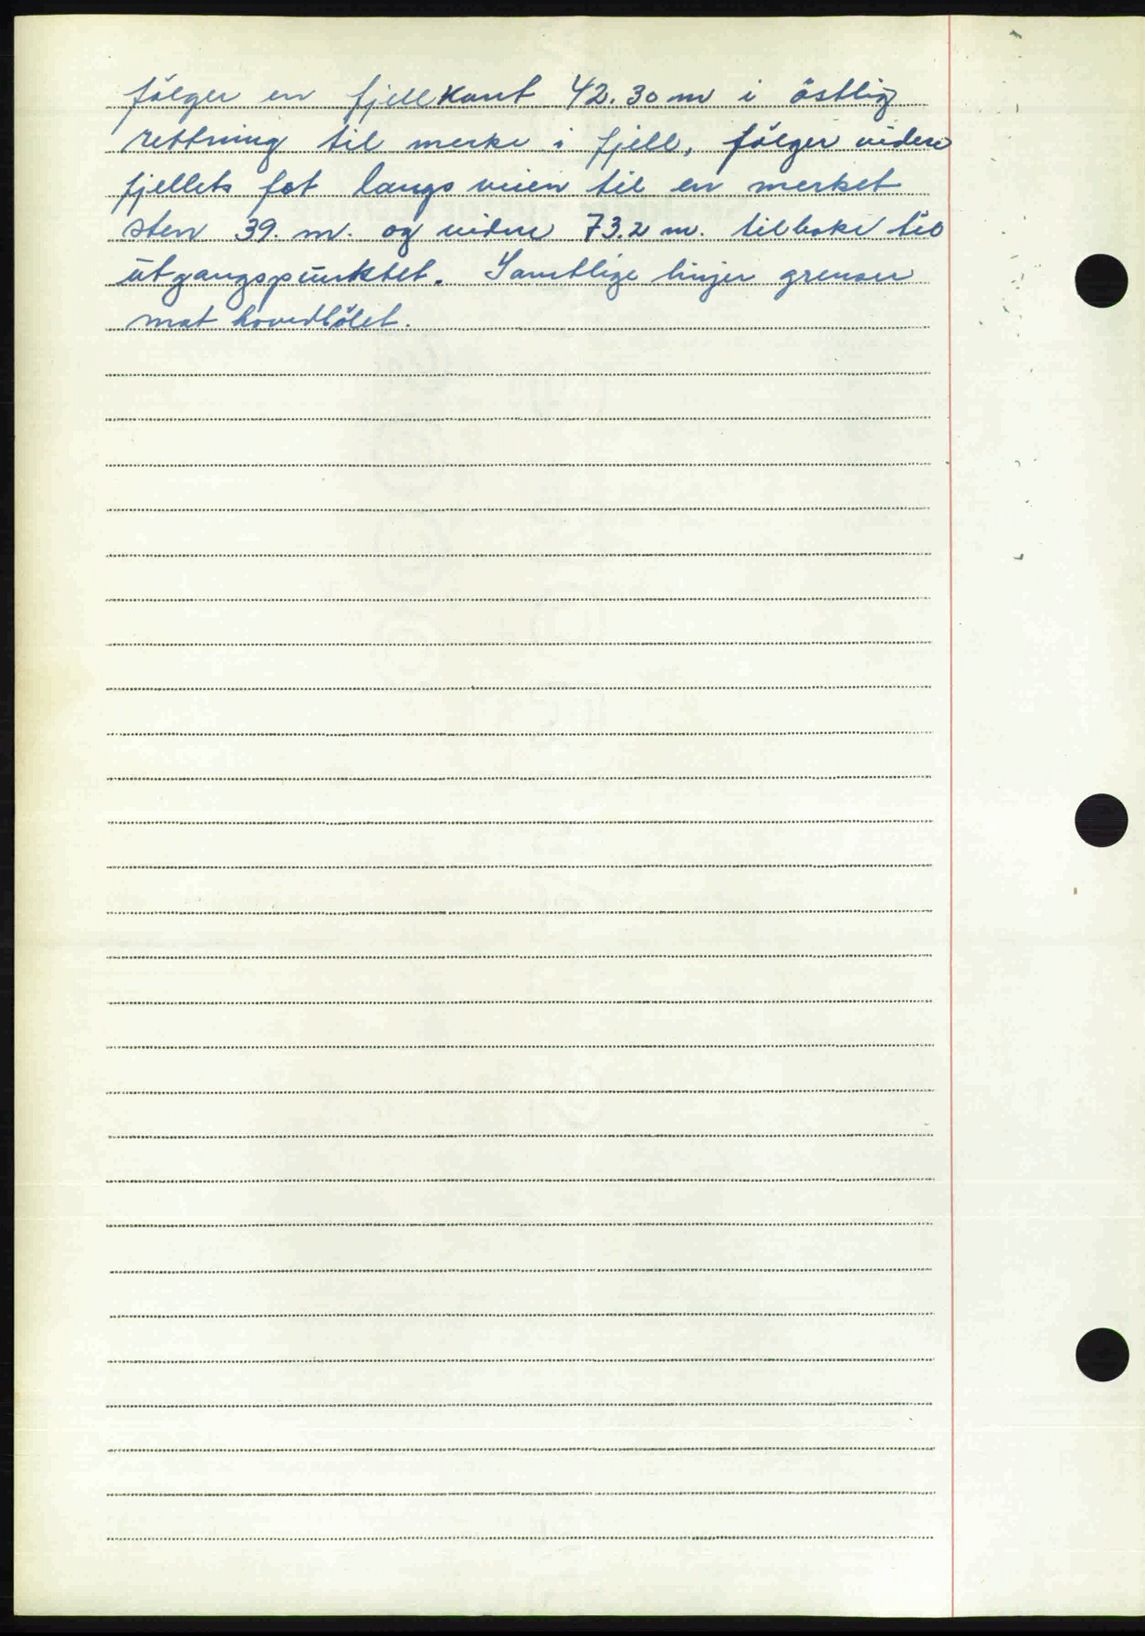 fölger en fjellkant 42.30 m i östlig
rettning til merke i fjell, fölger videre
fjellets fot langs veien til en merket
sten 39. m. og videre 73.2 m. tilbake til
utgangspunktet. Samtlige linjer grenser
mot hovedbölet.